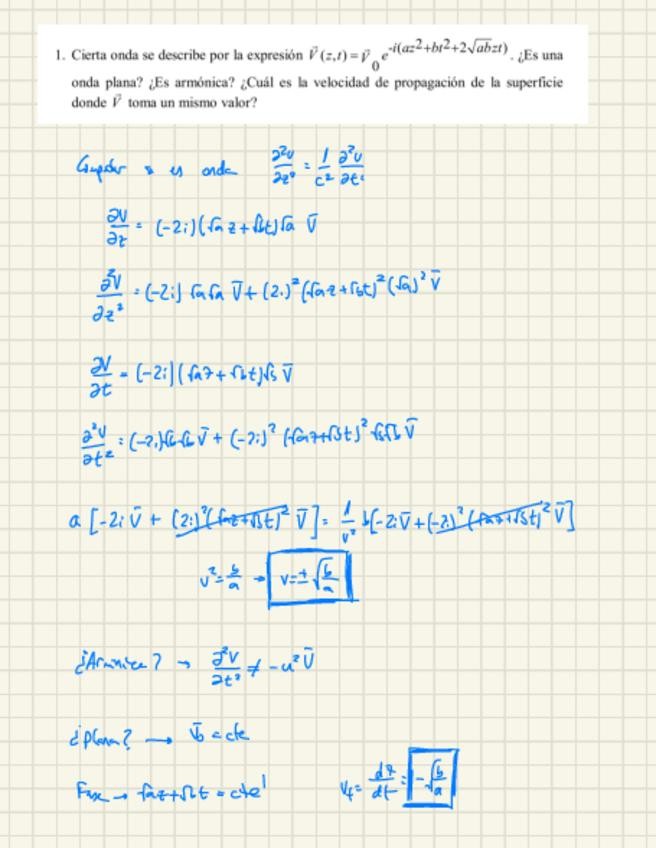 1. Cierta onda se describe por la expresión V⃗(z,t) = v⃗₀ e^{-i(az²+bt²+2√(ab)zt)}. ¿Es una
onda plana? ¿Es armónica? ¿Cuál es la velocidad de propagación de la superficie
donde V⃗ toma un mismo valor?
es onda ∂²v/∂z² = 1/c² ∂²v/∂t²
∂V/∂z = (-2i)(√a z + √b t)√a V̄
∂²V/∂z² = (-2i) √a√a V̄ + (2i)² (√a z + √b t)² (√a)² V̄
∂V/∂t = (-2i)(√a z + √b t)√b V̄
∂²V/∂t² = (-2i)√b√b V̄ + (-2i)² (√a z + √b t)² √b√b V̄
a [-2i V̄ + (2i)² (√a z + √b t)² V̄] = 1/v² b[-2i V̄ + (-2i)² (√a z + √b t)² V̄]
v² = b/a → v = ± √(b/a)
¿Armónica? → ∂²V/∂t² ≠ -ω² V̄
¿plana? → V̄₀ = cte
Fase → √a z + √b t = cte' V_f = dz/dt = -√(b/a)